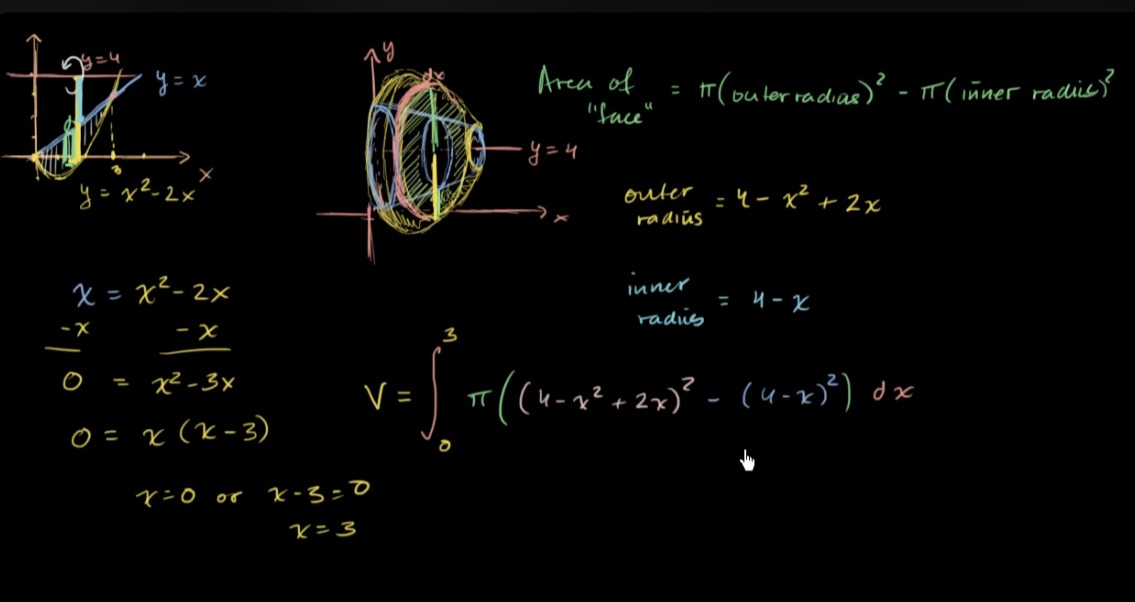 y=4
y = x
3
x
y = x²-2x
y
dx
y=4
x
Area of "face" = π(outer radius)² - π(inner radius)²
outer radius = 4 - x² + 2x
inner radius = 4 - x
x = x²- 2x
-x - x
0 = x²-3x
0 = x (x-3)
x=0 or x-3=0
x=3
V = ∫₀³ π((4-x²+2x)² - (4-x)²) dx